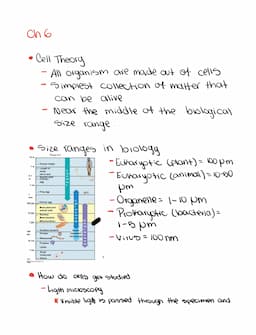 Ch 6
• Cell Theory
- All organism are made out of cells
- Simplest collection of matter that
can be alive
- Near the middle of the biological
size range
• Size ranges in biology
- Eukaryotic (plant) = 100 μm
- Eukaryotic (animal) = 10-50
μm
- Organelle = 1-10 μm
- Prokaryotic (bacteria) =
1-5 μm
- Virus = 100 nm
• How do cells get studied
- Light microscopy
Visible light is passed through the specimen and